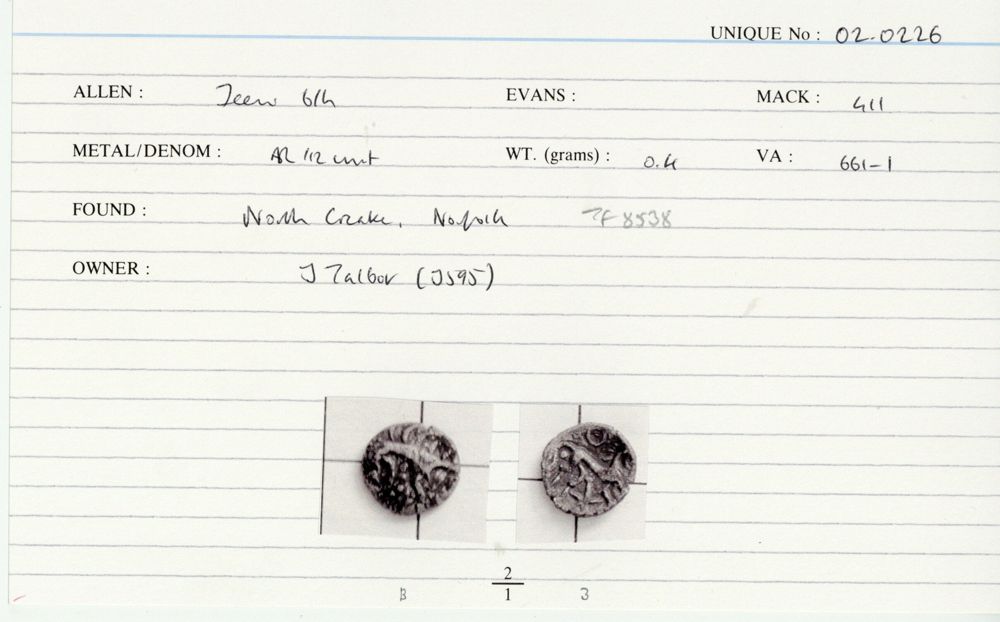 UNIQUE No : 02.0226
ALLEN : Iceni 6/h EVANS : MACK : 411
METAL/DENOM : AR 1/2 unit WT. (grams) : 0.4 VA : 661-1
FOUND : North Creake, Norfolk TF 8538
OWNER : J Talbot (JS95)
2
1
B 3